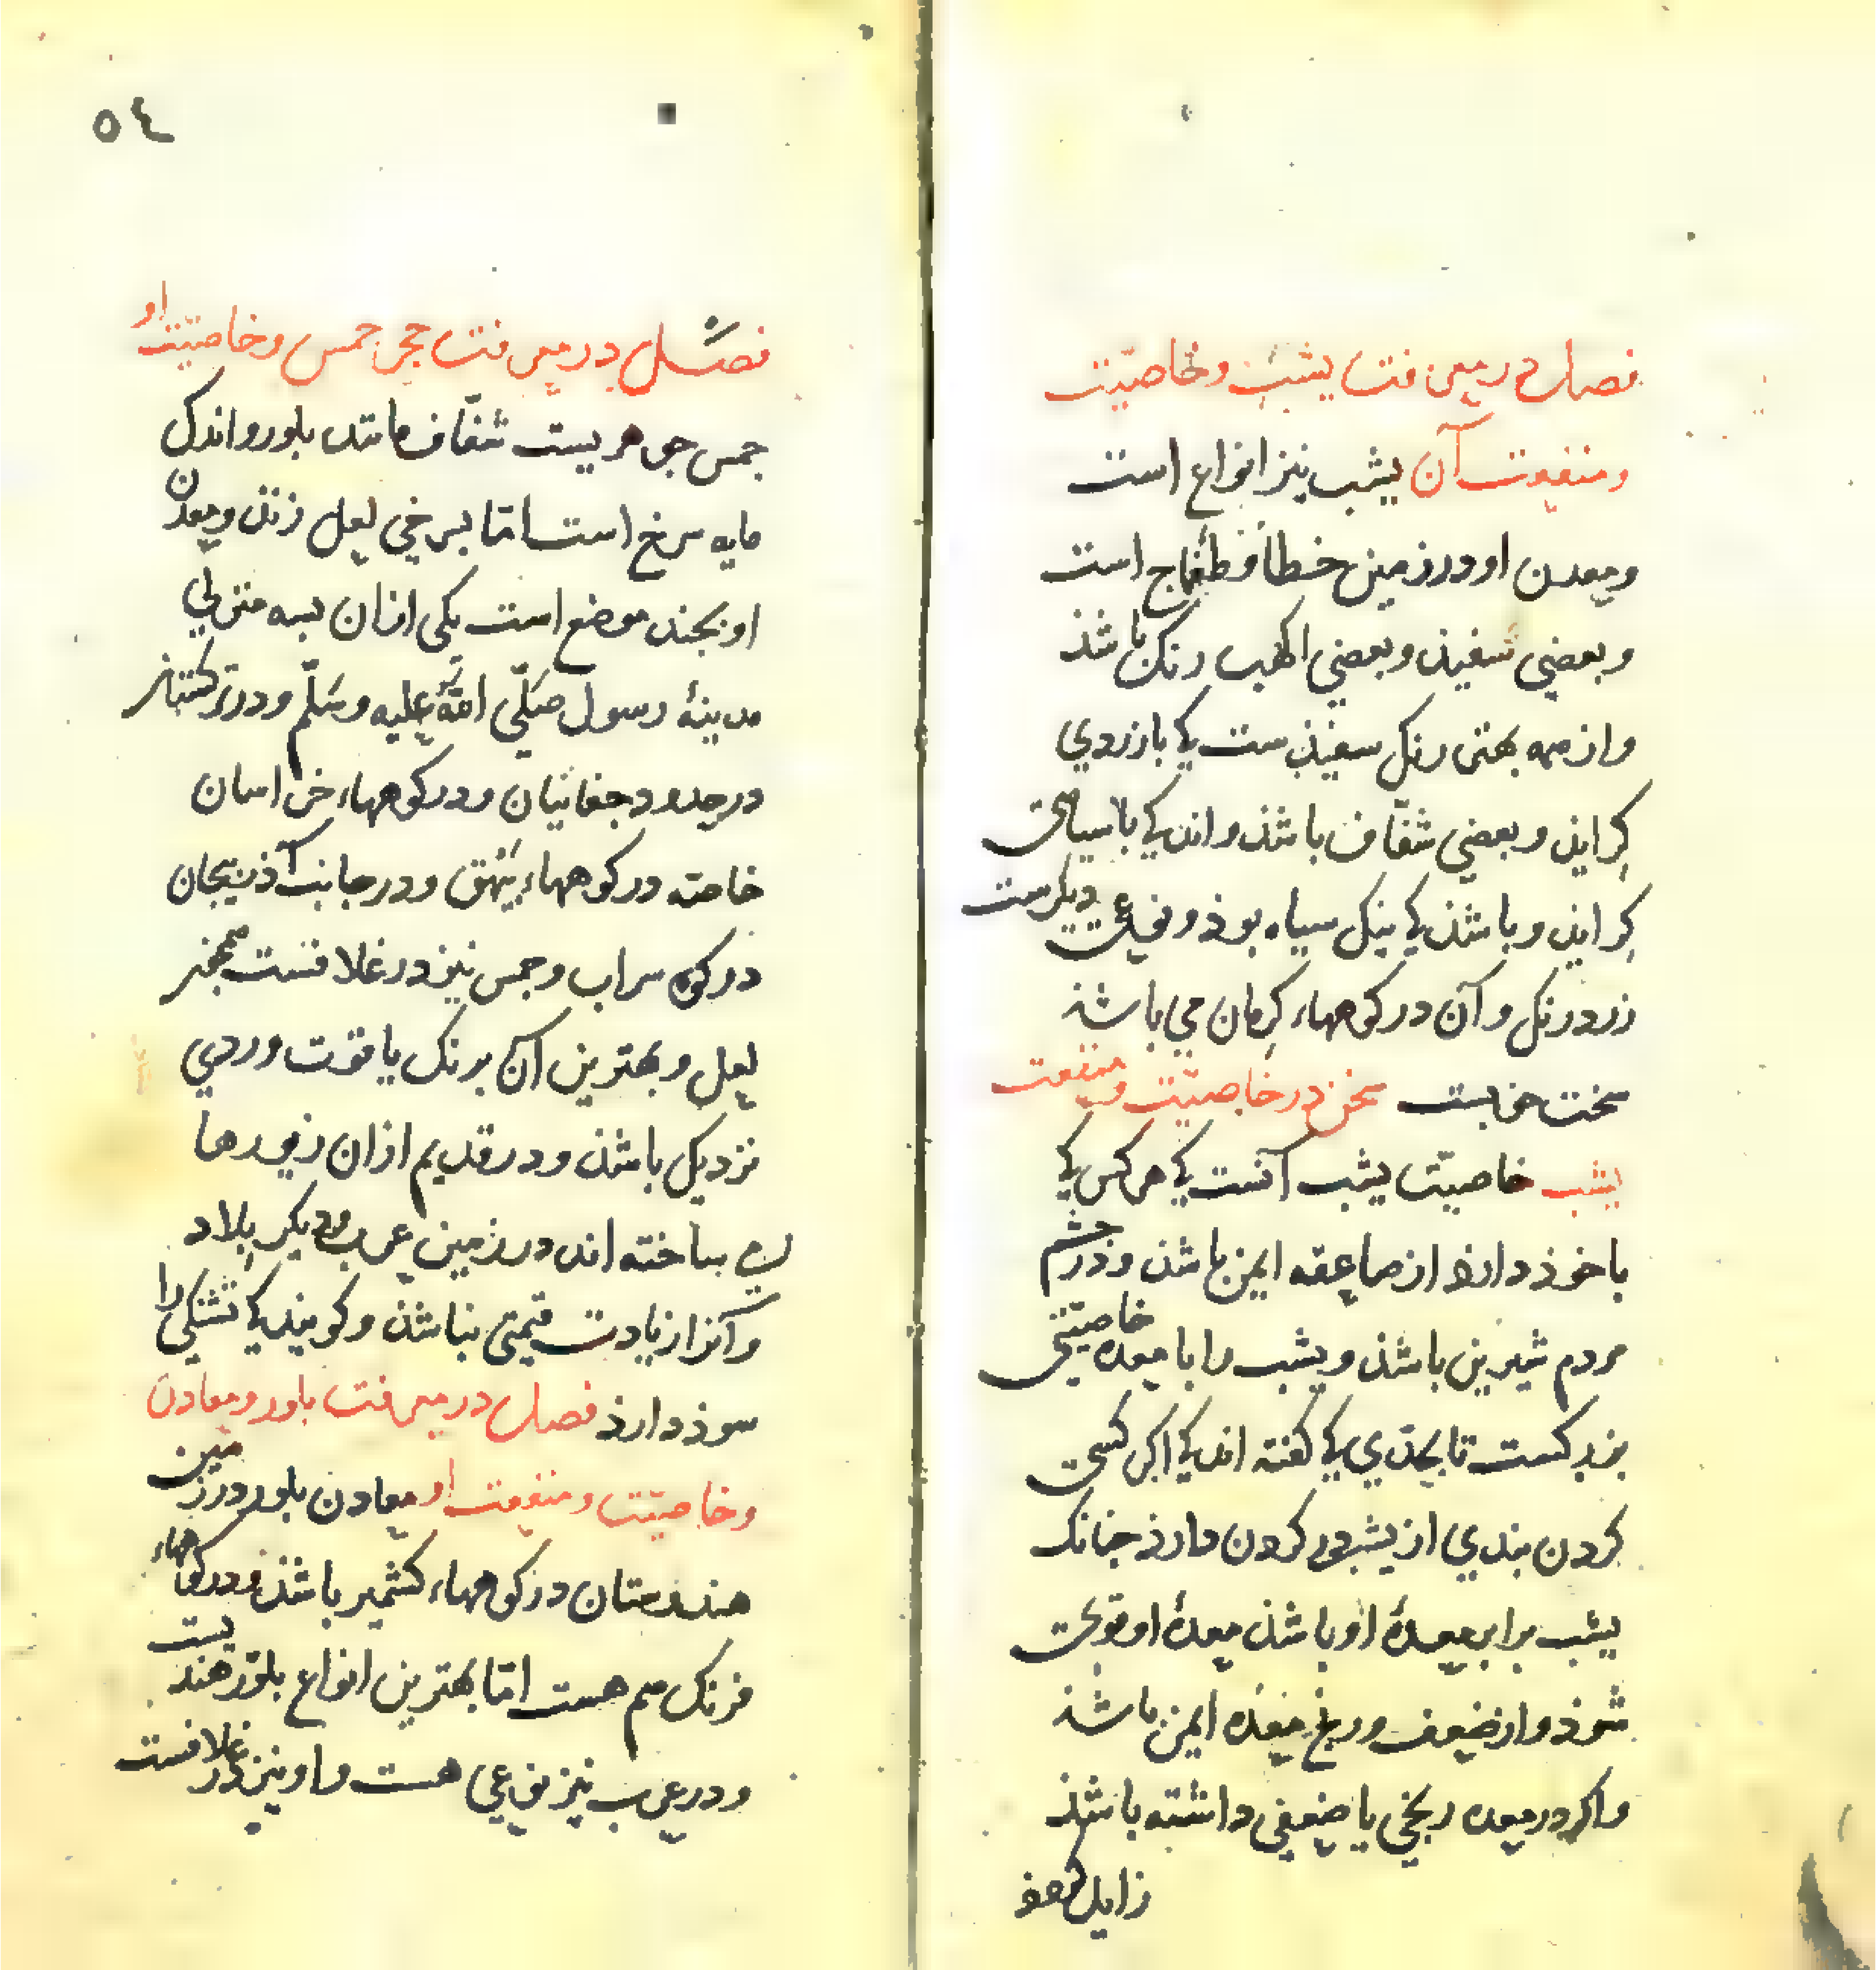 فصل در معرفت یشب وخاصیّت
ومنفعت آن یشب نیز انواع است
ومعدن او در زمین خطا وطمغاج است
وبعضي سفیذ وبعضي اکهب رنک باشذ
واز همه بهتر رنک سفیذست کی بازردي
کراید وبعضي شفّاف باشذ واند کی با سیاهی
کراید وباشذ کی بنیک سیاه بوذ ونوعی دیکرست
زرد رنک وآن در کوههاء کرمان می باشذ
سخت خوبست سخن در خاصیّت ومنفعت
یشب خاصیّت یشب آنست کی هر کس کی
باخوذ دارذ از صاعقه ایمن باشذ ودر چشم
مردم شیرین باشذ ویشب را با معده خاصیّتی
بزرکست تا بحدّي کی کفته اند کی اکر کسی
کردن بندي از یشب در کردن دارذ جنانک
یشب برابر معدهٔ او باشذ معدهٔ او قوی
شوذ واز ضعف ورنج معده ایمن باشذ
واکر در معده رنجی یا ضعفی داشته باشذ
زایل شوذ
٥٤
فصل در معرفت حجر جمس وخاصیّت او
جمس جوهریست شفّاف مانند بلور واندک
مایه سرخ است امّا بسرخي لعل نزند ومعدن
او بجند موضع است یکی ازان بسه منزلي
مدینهٔ رسول صلّی الله علیه وسلّم ودر ترکستان
در حدود جغانیان ودر کوههاء خراسان
خاصّه در کوههاء بیهق ودر جانب آذربیجان
در کوه سراب وجمس نیز در غلافست همجو
لعل وبهترین آن برنک یاقوت وردي
نزدیک باشذ ودر قدیم ازان زیورها
ساخته اند در زمین عرب ودیکر بلاد
وآنرا زیادت قیمتی نباشذ وکویند کی تشنکی را
سوذ دارذ فصل در معرفت بلور ومعادن
وخاصیّت ومنفعت او معادن بلور در زمین
هندوستان در کوههاء کشمیر باشذ ودر کوههاء
فرنک هم هست امّا بهترین انواع بلور هندیست
ودر عرب نیز نوعی هست واو نیز در غلافست